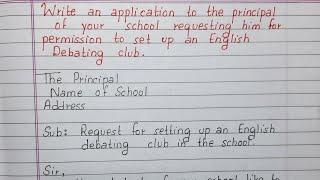 Write an application to the principal
of your school requesting him for
permission to set up an English
Debating club.
The Principal
Name of School
Address
Sub: Request for setting up an English
debating club in the school.
Sir,
school like to